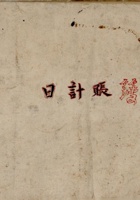 日計賬